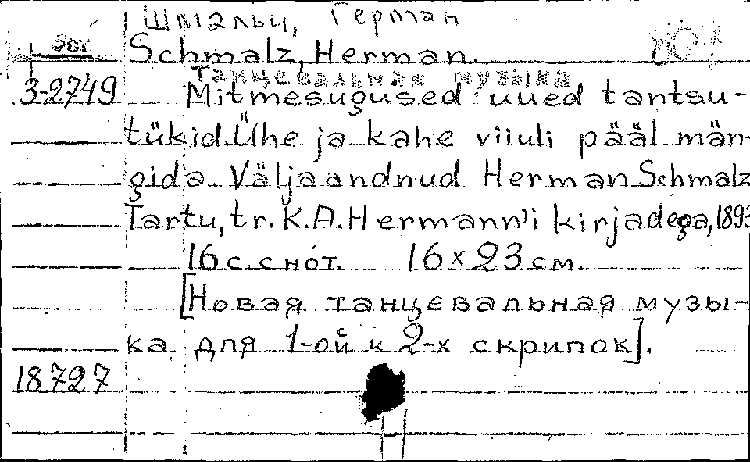 Шмальц, Герман
Schmalz, Herman.
Танцевальная музыка
3-2749 Mitmesugused uued tantsu-
tükid. Ühe ja kahe viiuli pääl män-
gida. Väljaandnud Herman Schmalz
Tartu, tr. K.A. Hermann'i kirjadega, 1893
16 с. с нот. 16 x 23 см.
[Новая танцевальная музы-
ка для 1-ой и 2-х скрипок].
18727